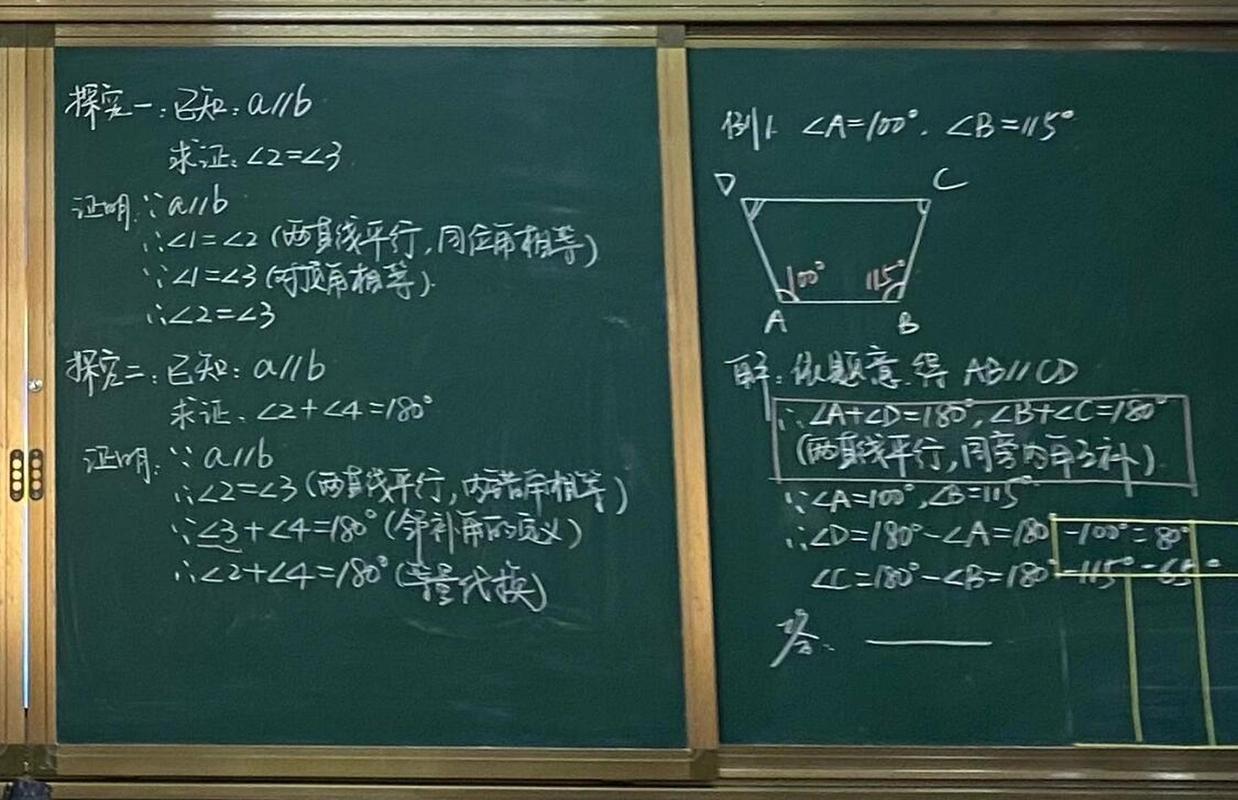 探究一:已知:a∥b
求证:∠2=∠3
证明:∵a∥b
∴∠1=∠2(两直线平行,同位角相等)
∵∠1=∠3(对顶角相等)
∴∠2=∠3
探究二:已知:a∥b
求证:∠2+∠4=180°
证明:∵a∥b
∴∠2=∠3(两直线平行,内错角相等)
∵∠3+∠4=180°(邻补角的定义)
∴∠2+∠4=180°(等量代换)
例1 ∠A=100°,∠B=115°
D C
100° 115°
A B
解:依题意得 AB∥CD
∴∠A+∠D=180°,∠B+∠C=180°
(两直线平行,同旁内角互补)
∵∠A=100°,∠B=115°
∴∠D=180°-∠A=180-100°=80°
∠C=180°-∠B=180°-115°=65°
答: